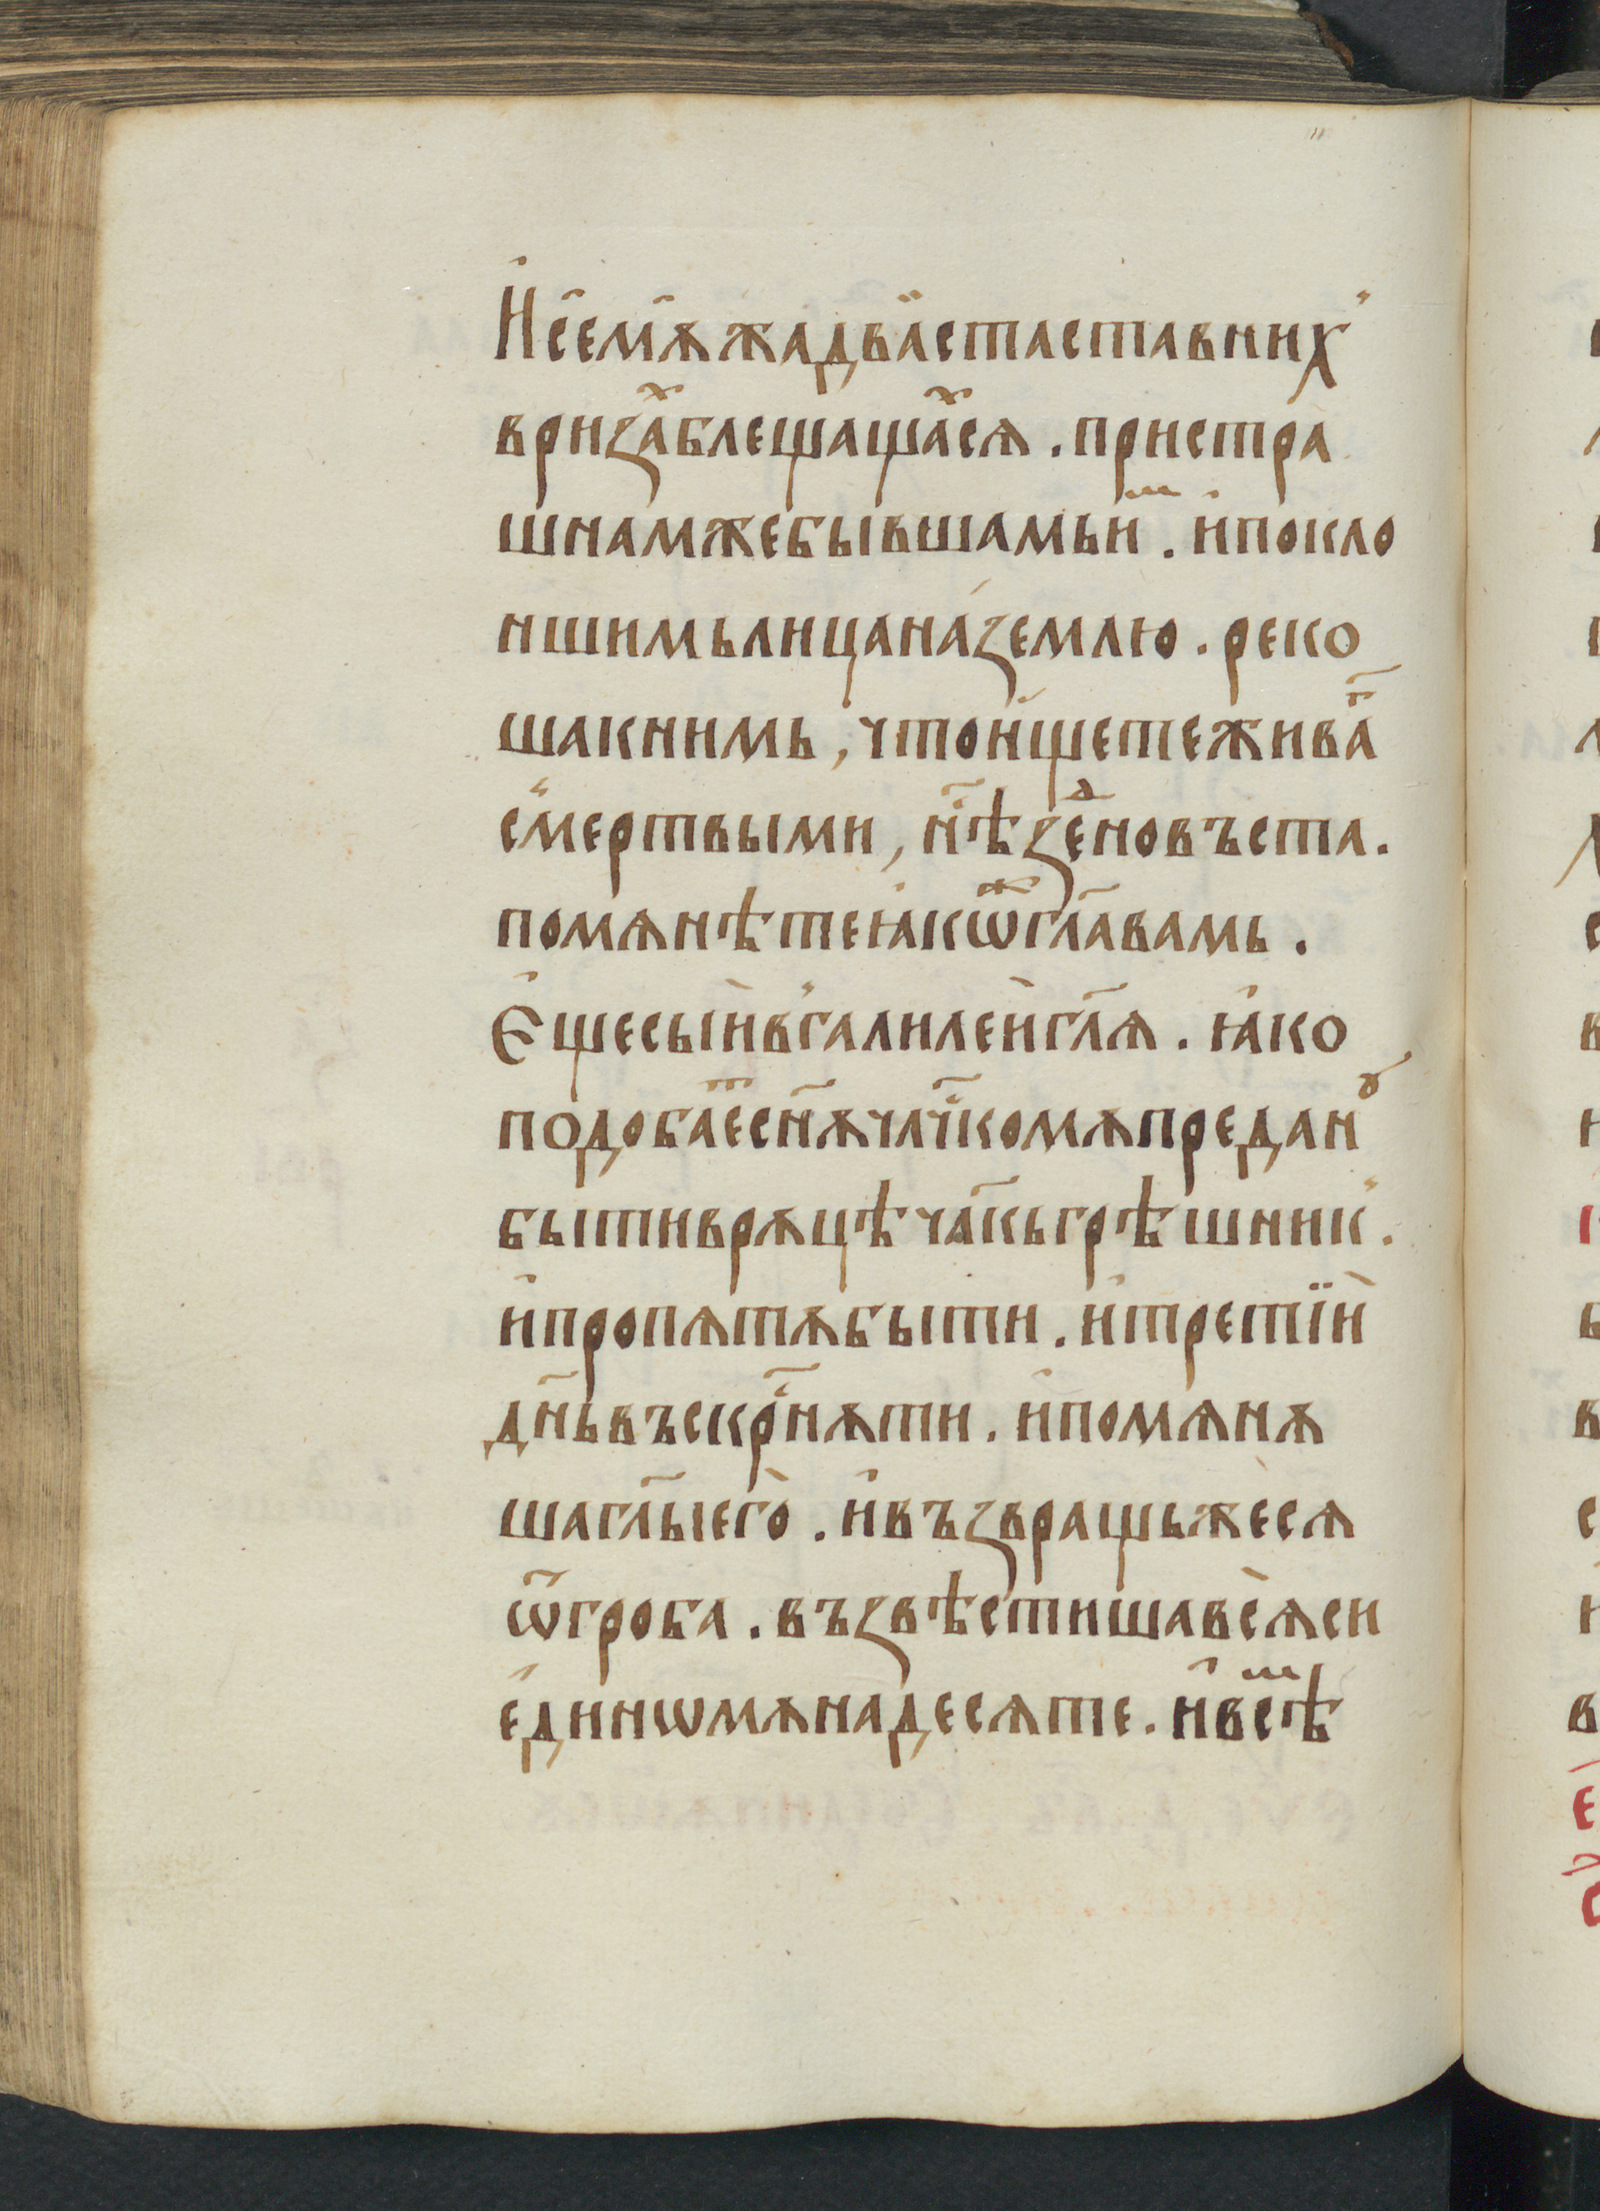 И҆се҆мѫ҆жадва̏стаставних̾
вриза҆ⷯблещаща҆ⷯсѧ . пристра
шнамжебывшамьи̑ⷨ . и҆покло
ншимьлицаназе́млю . реко
шакнимь , чтои҆щетежива҆ⷢ҇
см̾ертвыми , нⷭ҇ѣзе҆ⷣновъста .
помѧнѣтеꙗ҆кѡ҆ⷤгл҃авамь .
Є҆щесыи҆в̾галилеи̇гл҃ѧ . ꙗ҆ко
подобае҆ⷮсн҃ѫчл҃чⷭ҇комѫпреданꙋ
бытиврѫцѣчл҃кьгрѣшник̾ .
и҆пропѧтѫбыти . и҆третїи
дн҃ьвъскрⷭ҇нѫти . и҆помѧнѫ
шагл҃ыего̀ . и҆възвращьжеѐсѧ
ѿгроба . възвѣстишавсѐѫси
е҆динѡмѫнадесѧте . и҆всⷨѣ